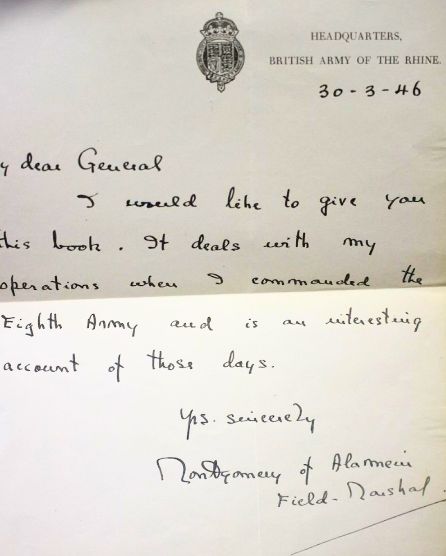 HEADQUARTERS,
BRITISH ARMY OF THE RHINE.
30-3-46
y dear General
I would like to give you
this book. It deals with my
operations when I commanded the
Eighth Army and is an interesting
account of those days.
Yrs. sincerely
Montgomery of Alamein
Field-Marshal.